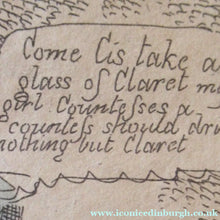 Come Cis take a
glass of Claret m
girl Countesses a
countess should dr
nothing but Claret
www.iconicedinburgh.co.uk